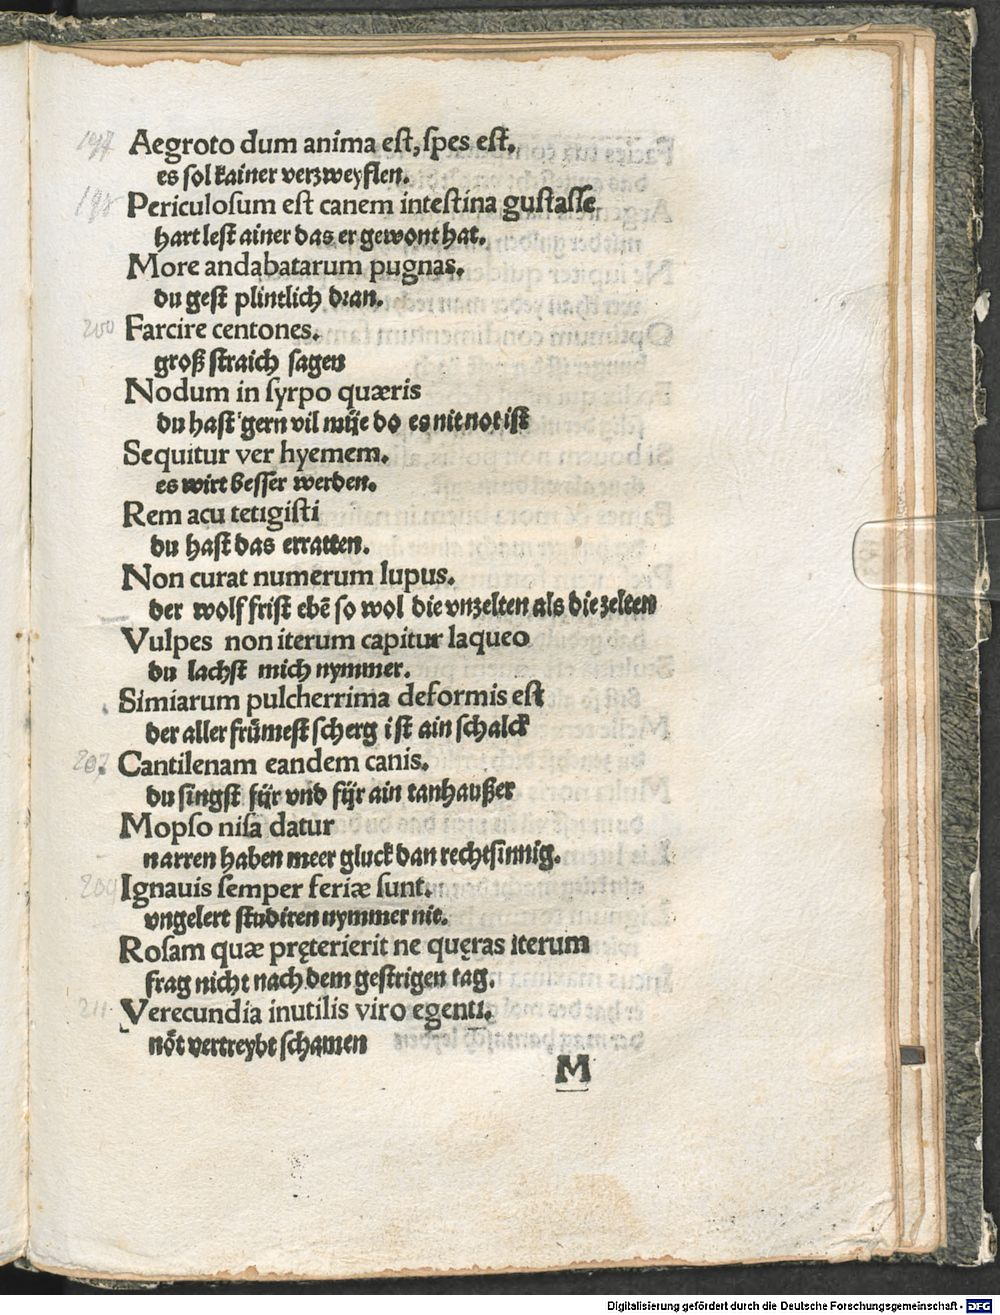 197 Aegroto dum anima est, spes est.
es sol kainer verzweyflen.
198 Periculosum est canem intestina gustasse
hart lest ainer das er gewont hat.
More andabatarum pugnas.
du gest plintlich dran.
200 Farcire centones.
groß straich sagen
Nodum in syrpo quæris
du hast gern vil müe do es nit not ist
Sequitur ver hyemem.
es wirt besser werden.
Rem acu tetigisti
du hast das erratten.
Non curat numerum lupus.
der wolf frist ebē so wol die vnzelten als die zelten
Vulpes non iterum capitur laqueo
du lachst mich nymmer.
Simiarum pulcherrima deformis est
der aller frümest scherg ist ain schalck
207. Cantilenam eandem canis.
du singst für vnd für ain tanhaußer
Mopso nisa datur
narren haben meer gluck dan rechtsinnig.
209 Ignauis semper feriæ sunt.
vngelert studiren nymmer nit.
Rosam quæ pręterierit ne quęras iterum
frag nicht nach dem gestrigen tag.
211. Verecundia inutilis viro egenti.
nöt vertreybt schamen
M
Digitalisierung gefördert durch die Deutsche Forschungsgemeinschaft - DFG